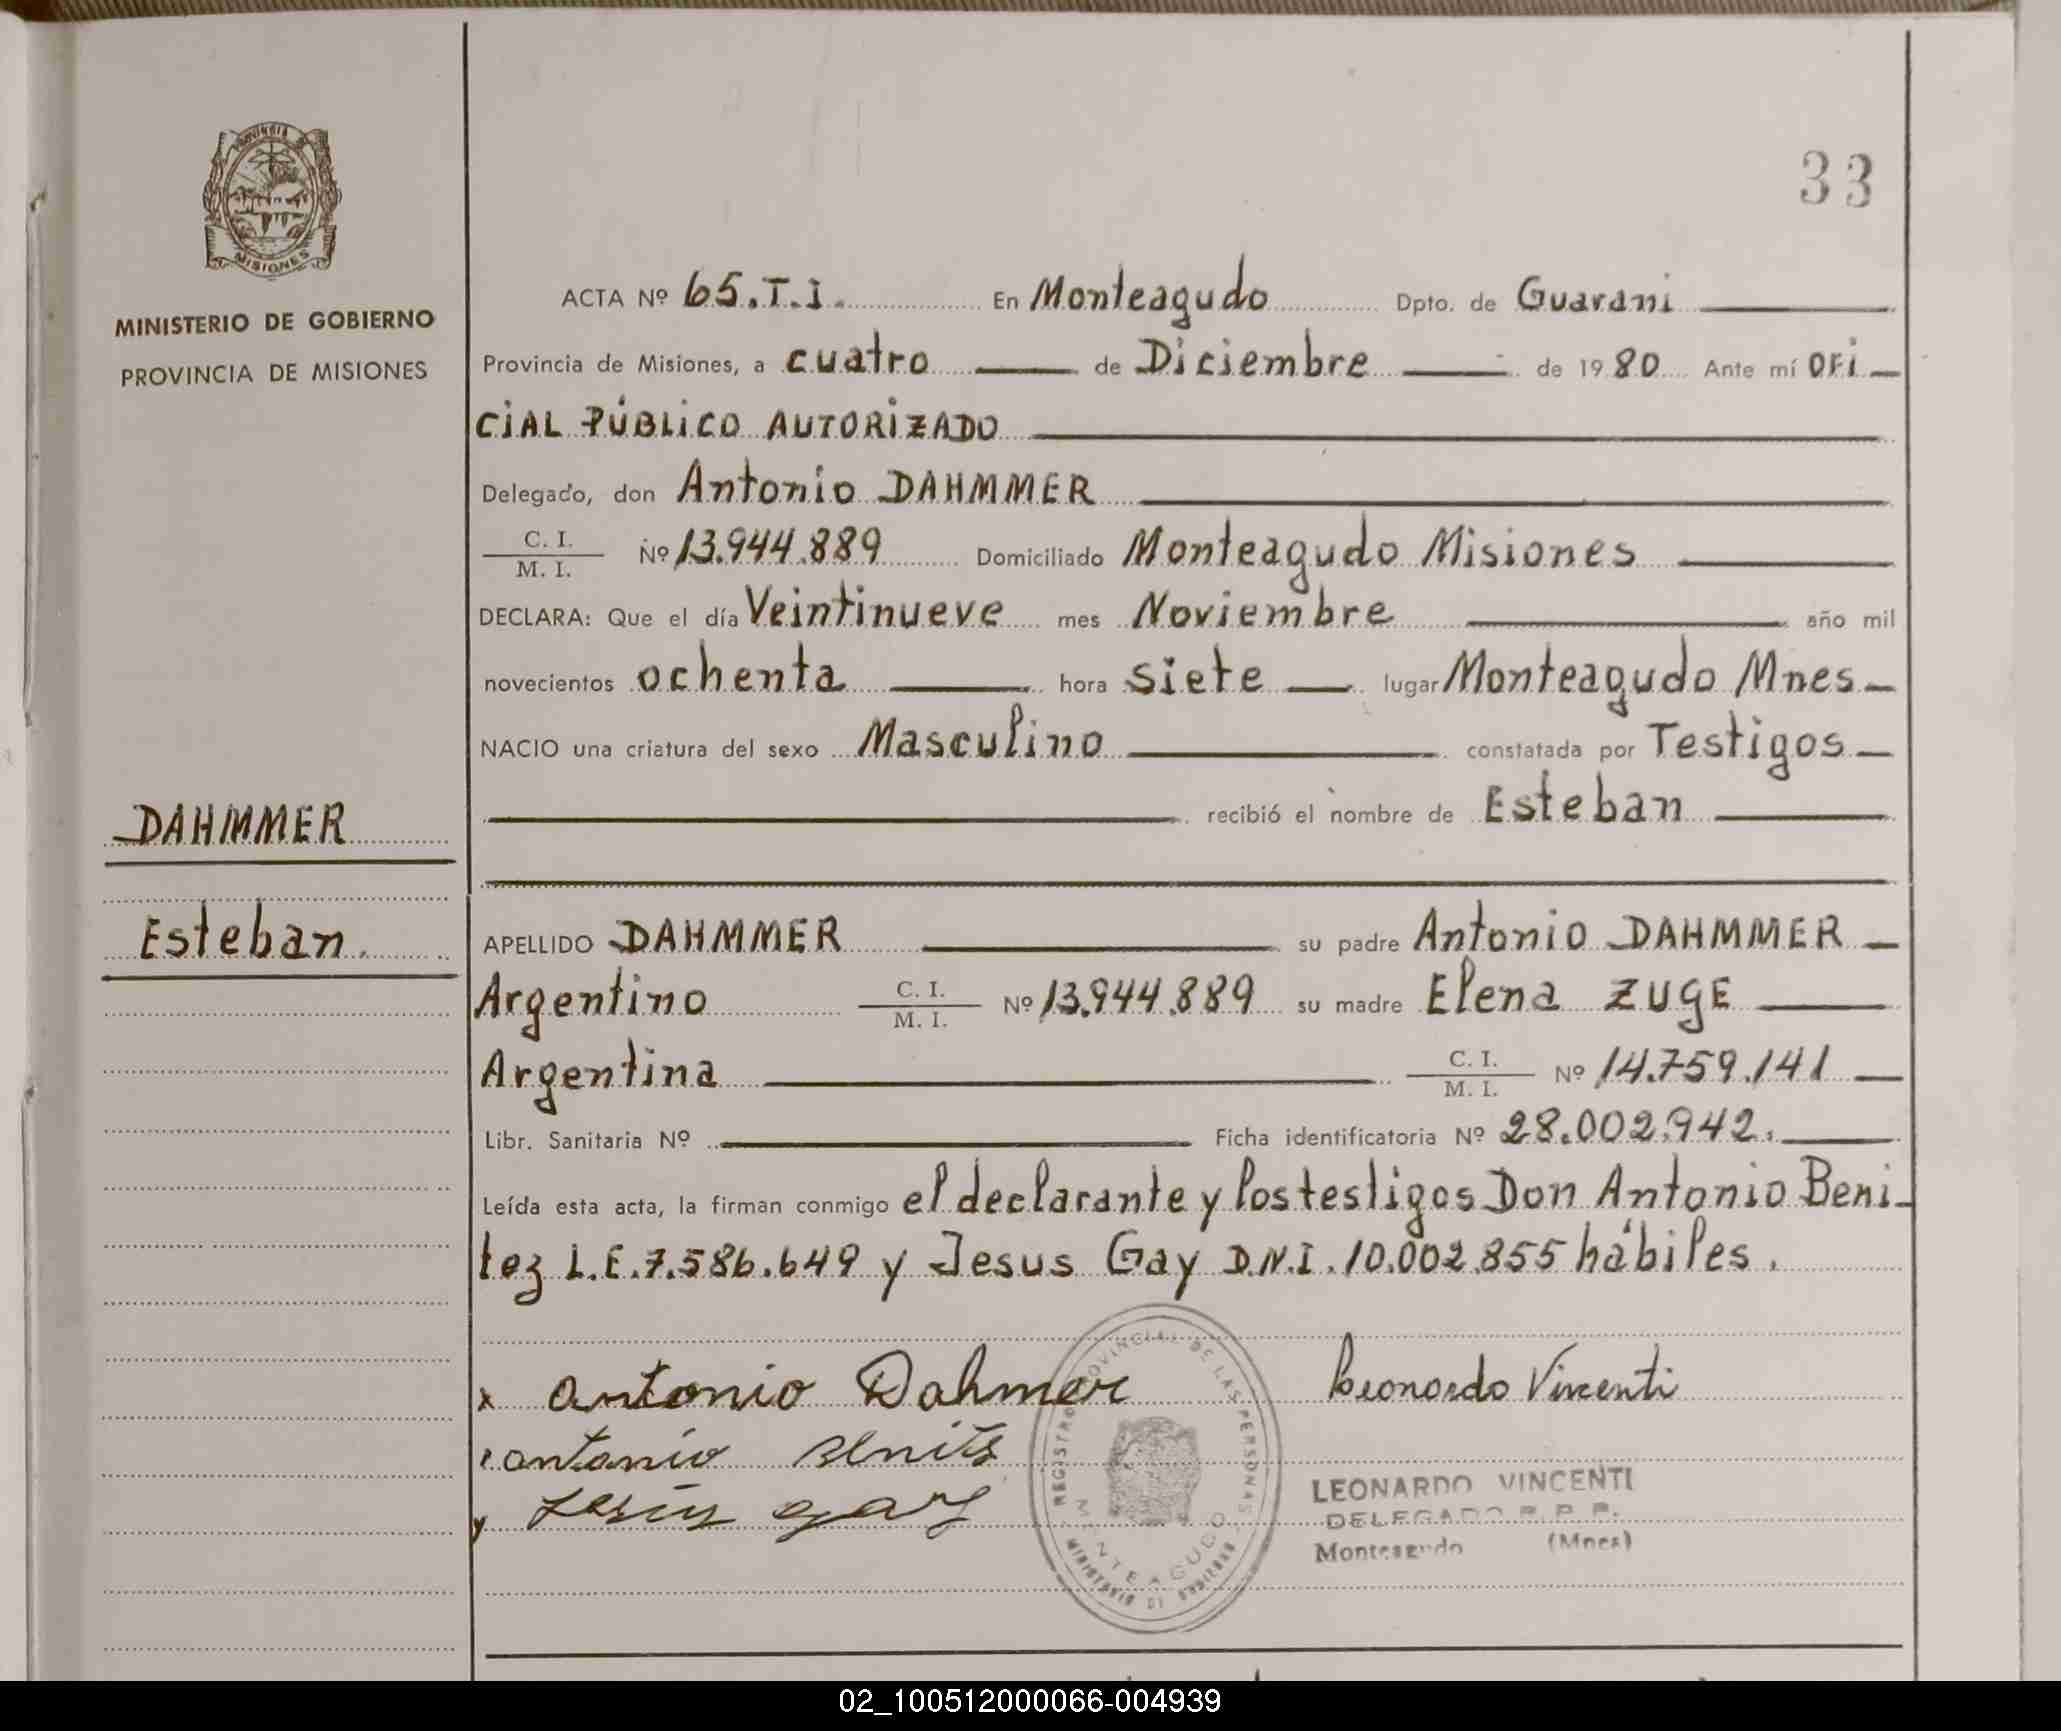 33
PROVINCIA DE
MISIONES
MINISTERIO DE GOBIERNO
PROVINCIA DE MISIONES
ACTA Nº 65.T.I. En Monteagudo Dpto. de Guarani
Provincia de Misiones, a cuatro de Diciembre de 1980 Ante mí OFi
CiAL PÚBLiCO AUTORiZADO
Delegado, don Antonio DAHMMER
C. I.
M. I. Nº 13.944.889 Domiciliado Monteagudo Misiones
DECLARA: Que el día Veintinueve mes Noviembre año mil
novecientos ochenta hora siete lugar Monteagudo Mnes
NACIO una criatura del sexo Masculino constatada por Testigos
recibió el nombre de Esteban
DAHMMER
Esteban.
APELLIDO DAHMMER su padre Antonio DAHMMER
Argentino C. I.
M. I. Nº 13.944.889 su madre Elena ZUGE
Argentina C. I.
M. I. Nº 14.759.141
Libr. Sanitaria Nº Ficha identificatoria Nº 28.002.942.
Leída esta acta, la firman conmigo el declarante y los testigos Don Antonio Beni-
tez L.E.7.586.649 y Jesus Gay D.N.I. 10.002.855 hábiles.
x Antonio Dahmer
Leonardo Vincenti
antonio
Jesús gay
REGISTRO PROVINCIAL DE LAS PERSONAS
MONTEAGUDO
MINISTERIO DE GOBIERNO
LEONARDO VINCENTI
DELEGADO R. P. P.
Monteagudo (Mnes)
02_100512000066-004939